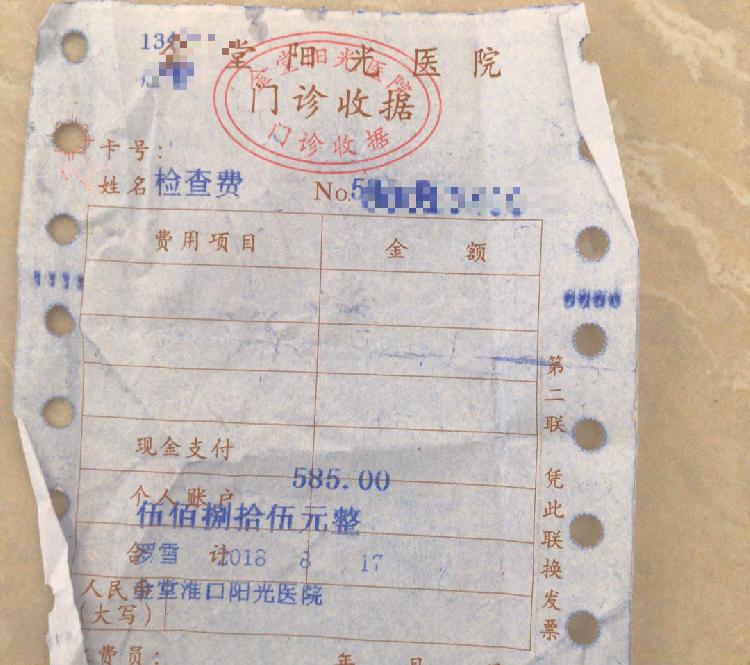 134
金堂阳光医院
金堂阳光医院
门诊收据
门诊收据
卡号:
姓名 检查费 No.5
费用项目 金 额
现金支付
585.00
个人账户
伍佰捌拾伍元整
合 计
罗雪 2018 8 17
人民金
金堂淮口阳光医院
(大写)
费员:
年 月
第二联 凭此联换发票